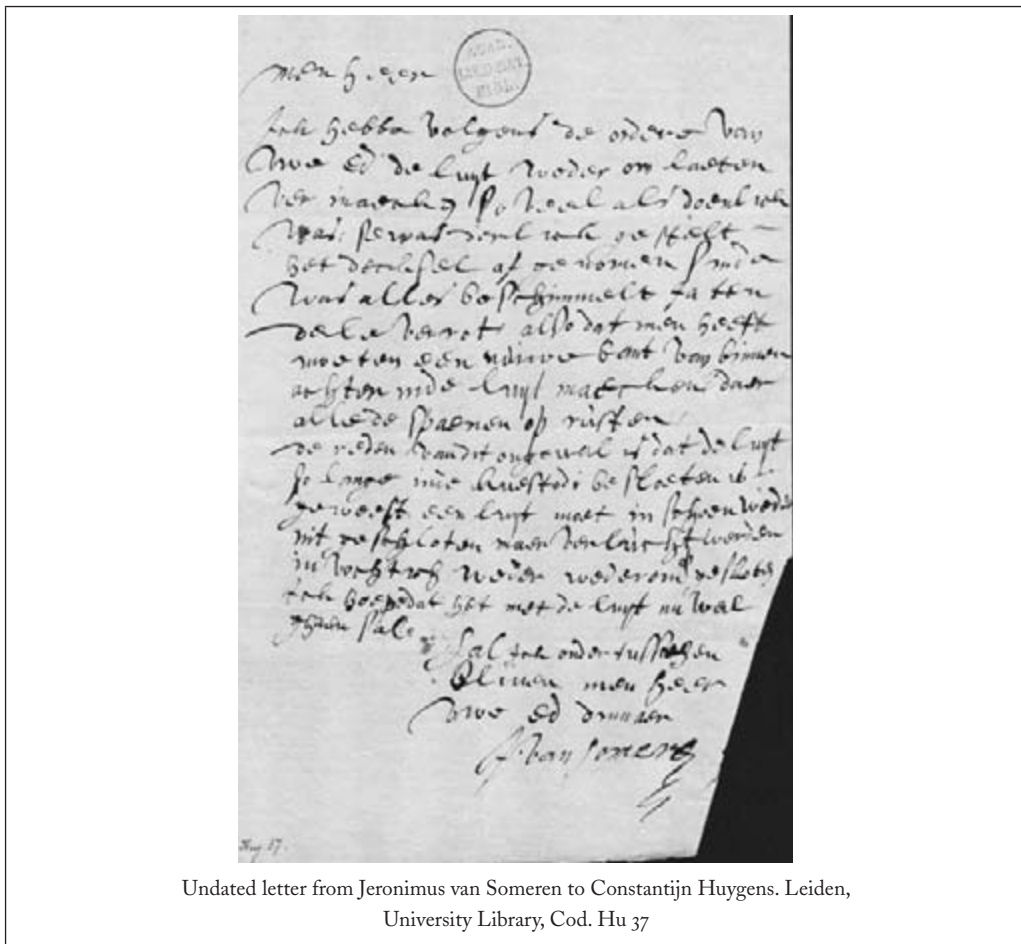 men heer
ACAD.
LVGD. BAT.
BIBL.
Ick hebbe volgens de ordere van
Uwe Ed de luyt weder om laeten
ver maecken so veel als doenlick
was
het decksel af genomen sinde
was alles beschimmelt ja ten
dele verrot also dat men heeft
moeten een nuwe bant van binnen
achten inde luyt maecken daer
alle de spaenen op rusten
de reden van dit ongeval is dat de luyt
so lange beslaeten is
geweest een luyt moet in schoen weder
uit geschloten werden
in vochtich weder wederom gesloten
Ick hoepe dat het met de luyt nu wal
sal
sal ick ondertusschen
bliven men heer
Uwe Ed
J. van Someren
Hug. 37.
Undated letter from Jeronimus van Someren to Constantijn Huygens. Leiden,
University Library, Cod. Hu 37